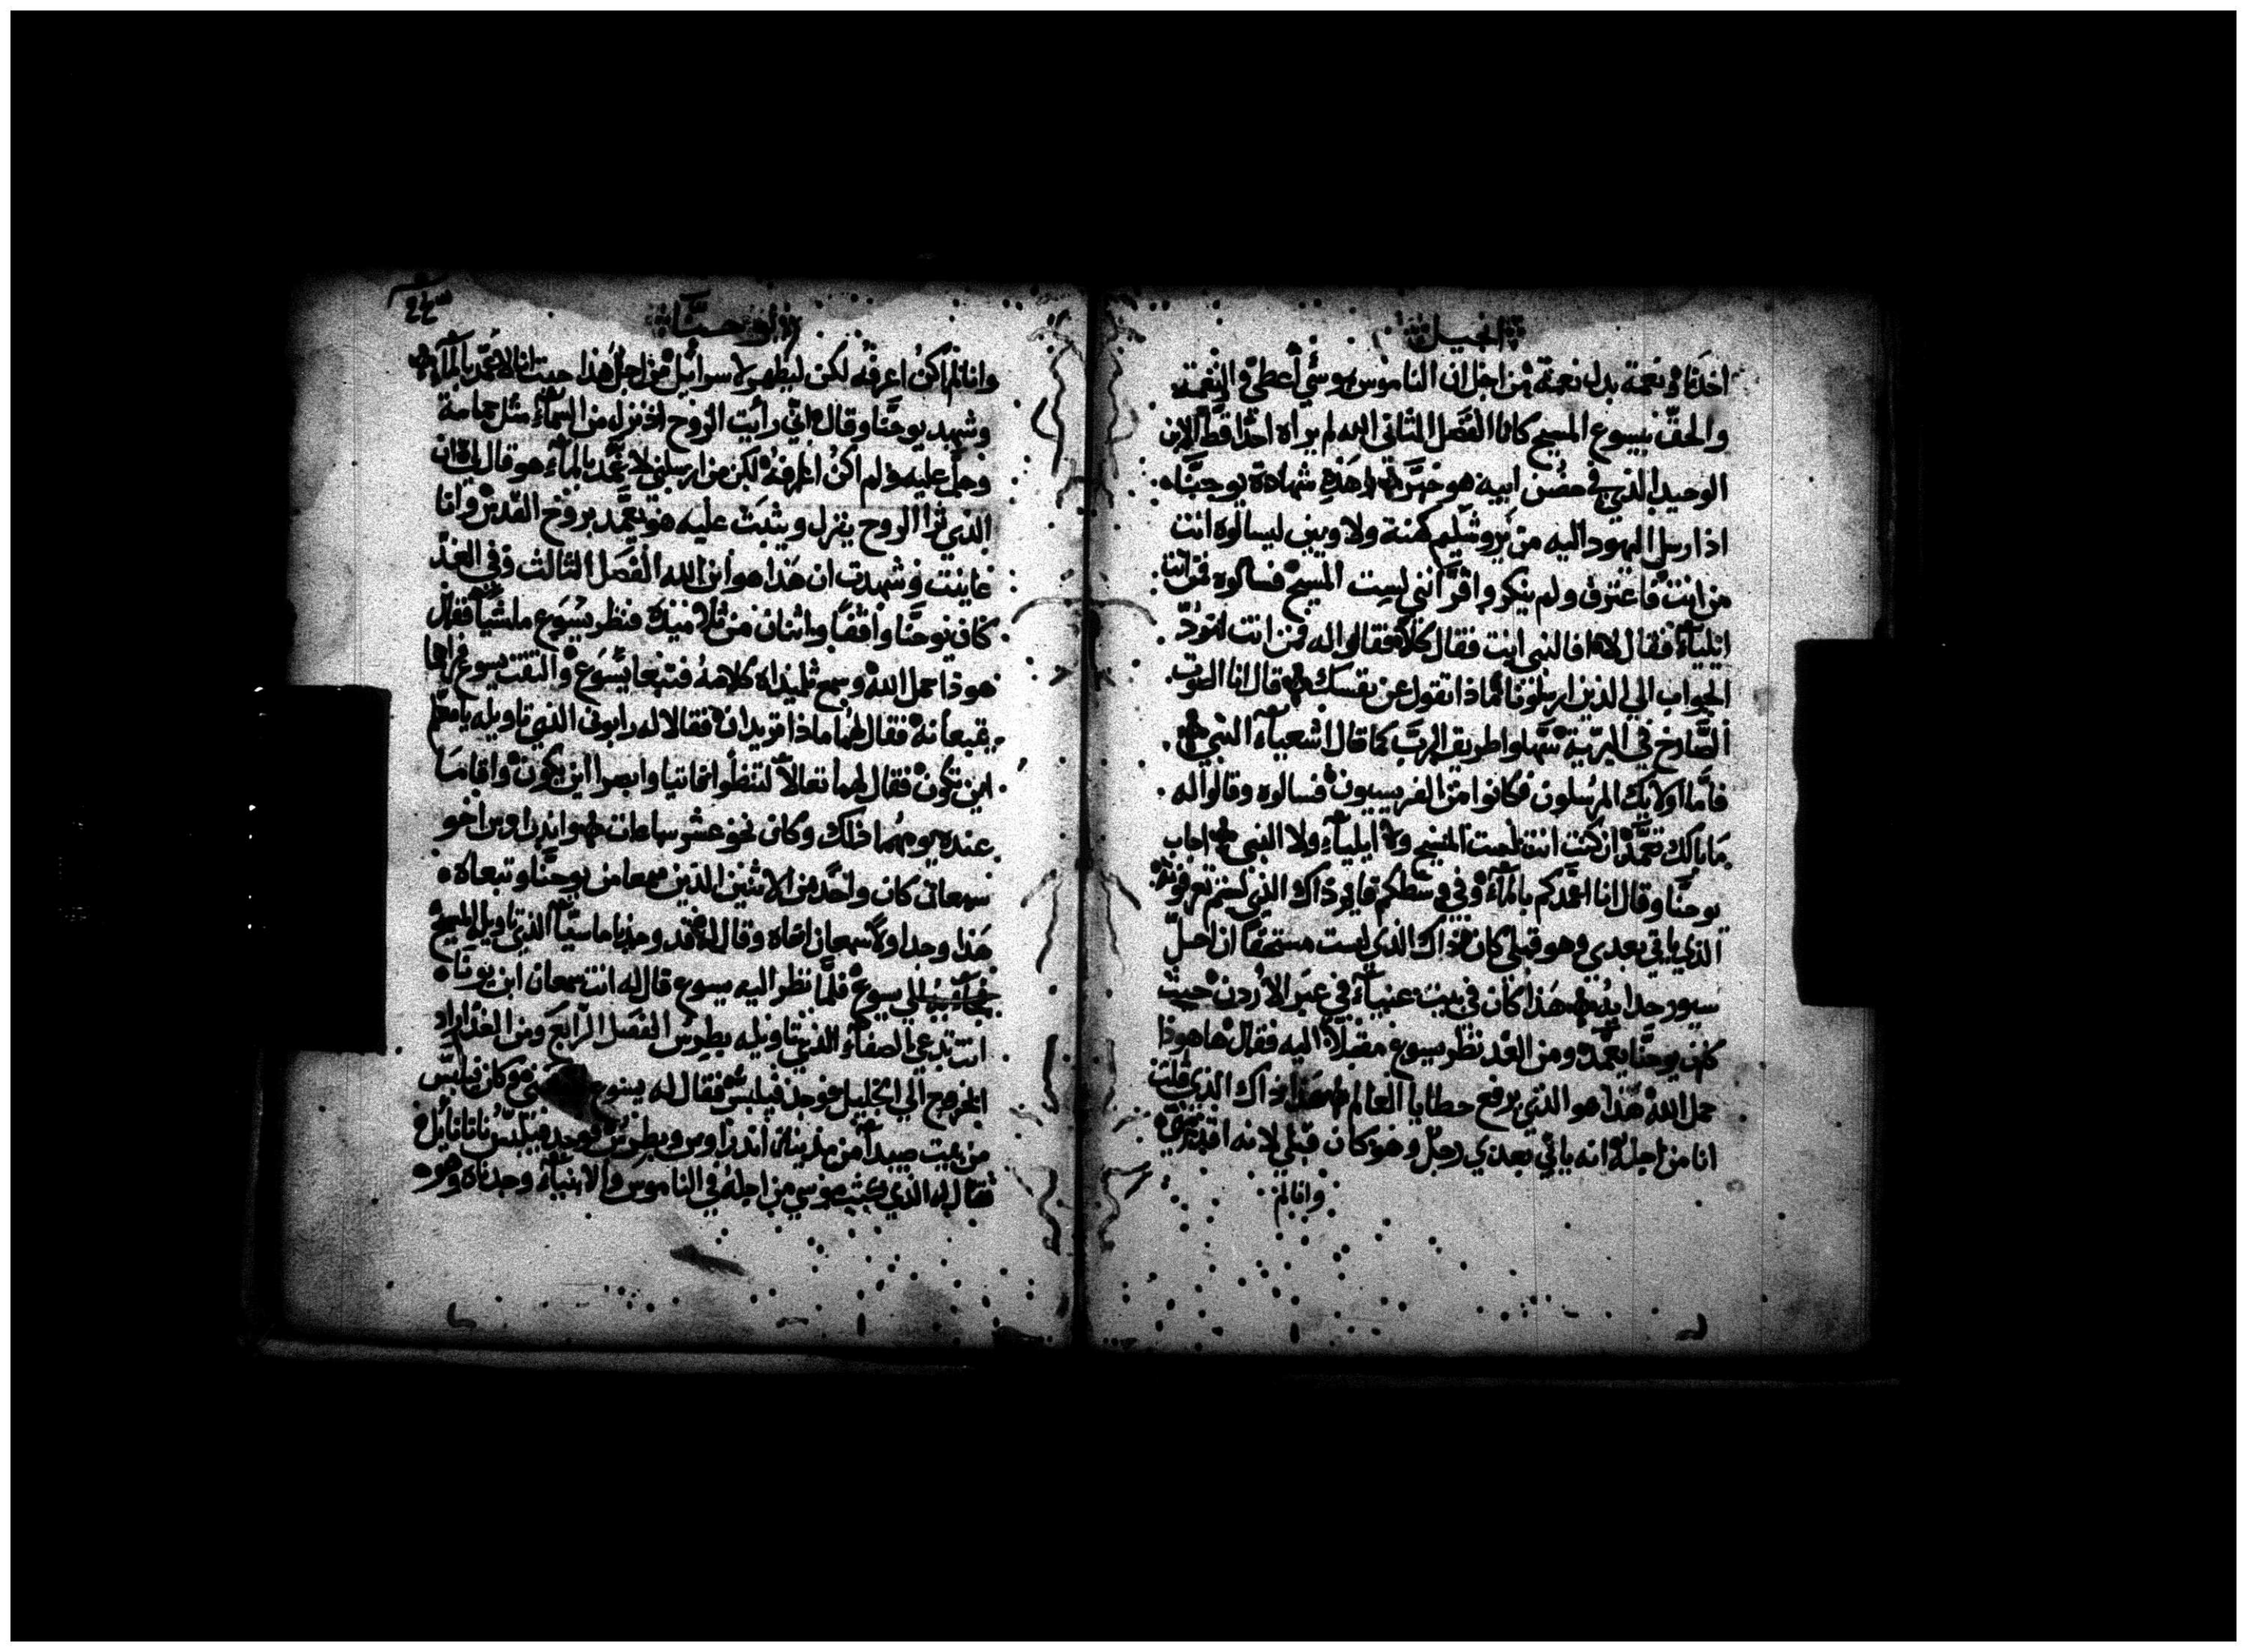 انجيل
اخذناه نعمة بدل نعمة من اجل ان الناموس بموسي أعطي والنعمة
والحق بيسوع المسيح كانا الفصل الثاني الله لم يراه احدا قط الابن
الوحيد الذي في حضن ابيه هو خبَّر وهذه شهادة يوحنَّا
اذ ارسل اليهود اليه من يروشليم كهنة ولاويين ليسالوه انت
من انت فاعترف ولم ينكر واقرَّ انني لست المسيح فسالوه فمن انت
ايلياء فقال لا افا النبي انت فقال كلا فقالوا له فمن انت لنردّ
الجواب الي الذين ارسلونا ماذا تقول عن نفسك قال انا الصوت
الصَّارخ في البرّية سهّلوا طريق الربّ كما قال اشعياء النبي
فأما اولايك المرسلون فكانوا من الفريسيون فسالوه وقالوا له
ما بالك تعمّد ان كنت انت لست المسيح ولا ايلياء ولا النبي اجاب
يوحنَّا وقال انا اعمّدكم بالماء وفي وسطكم قايم ذاك الذي لستم تعرفونه
الذي ياتي بعدي وهو قبلي كان ذاك الذي لست مستحقاً ان احلّ
سيور حدايه هذا كان في بيت عنياء في عبر الاردن حيث
كان يوحنَّا يعمّد ومن الغد نظر يسوع مقبلاً اليه فقال هاهوذا
حمل الله هذا هو الذي يرفع خطايا العالم هذا ذاك الذي قلت
انا من اجله انه ياتي بعدي رجل وهو كان قبلي لانه اقدم منّي
وانا لم
يوحنَّا
وانا لم اكن اعرفه لكن ليظهر لاسرائيل من اجل هذا جيت انا لاعمّد بالماء
وشهد يوحنَّا وقال انّي رأيت الروح اذ نزل من السماء مثل حمامة
وحلّ عليه ولم اكن اعرفه لكن من ارسلني لاعمّد بالماء هو قال لي ان
الذي ترا الروح ينزل ويثبت عليه هو يعمّد بروح القدس وانا
عاينت وشهدت ان هذا هو ابن الله الفصل الثالث وفي الغد
كان يوحنَّا واقفاً واثنان من تلاميذه فنظر يسوع ماشياً فقال
هوذا حمل الله وسمع تلميذاه كلامه فتبعا يسوع والتفت يسوع فراهما
يتبعانه فقال لهما ماذا تريدان فقالا له رابوني الذي تاويله يا معلّم
اين تكون فقال لهما تعالا لتنظرا فاتيا وابصرا اين يكون واقاما
عنده يومهما ذلك وكان نحو عشر ساعات واندراوس اخو
سمعان كان واحد من الاثنين الذين سمعا من يوحنَّا وتبعاه
هذا وجد اولاً سمعان اخاه وقال له قد وجدنا ماسيّا الذي تاويله المسيح
فجا به الي يسوع فلمَّا نظر اليه يسوع قال له انت سمعان ابن يونا
انت تدعي الصفاء الذي تاويله بطرس الفصل الرابع ومن الغد اراد
الخروج الي الجليل فوجد فيلبس فقال له يسوع هو كان فيلبس
من بيت صيدا من مدينة اندراوس وبطرس فوجد فيلبس ناتانايل
فقال له الذي كتب موسي من اجله في الناموس والانبياء وجدناه وهو